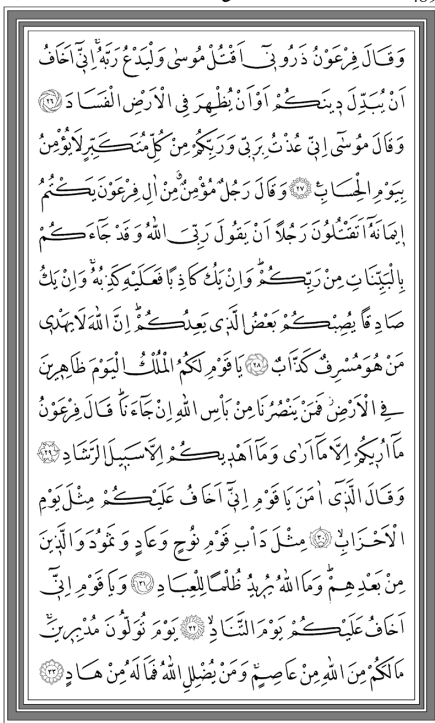 وَقَالَ فِرْعَوْنُ ذَرُونِٓي اَقْتُلْ مُوسٰى وَلْيَدْعُ رَبَّهُۚ اِنِّٓي اَخَافُ
اَنْ يُبَدِّلَ دِينَكُمْ اَوْ اَنْ يُظْهِرَ فِي الْاَرْضِ الْفَسَادَ ﴿٢٦﴾
وَقَالَ مُوسٰٓى اِنِّي عُذْتُ بِرَبِّي وَرَبِّكُمْ مِنْ كُلِّ مُتَكَبِّرٍ لَا يُؤْمِنُ
بِيَوْمِ الْحِسَابِ۟ ﴿٢٧﴾ وَقَالَ رَجُلٌ مُؤْمِنٌۗ مِنْ اٰلِ فِرْعَوْنَ يَكْتُمُ
اِيمَانَهُٓ اَتَقْتُلُونَ رَجُلًا اَنْ يَقُولَ رَبِّيَ اللّٰهُ وَقَدْ جَٓاءَكُمْ
بِالْبَيِّنَاتِ مِنْ رَبِّكُمْۜ وَاِنْ يَكُ كَاذِبًا فَعَلَيْهِ كَذِبُهُۚ وَاِنْ يَكُ
صَادِقًا يُصِبْكُمْ بَعْضُ الَّذِي يَعِدُكُمْۜ اِنَّ اللّٰهَ لَا يَهْدِي
مَنْ هُوَ مُسْرِفٌ كَذَّابٌ ﴿٢٨﴾ يَا قَوْمِ لَكُمُ الْمُلْكُ الْيَوْمَ ظَاهِرِينَ
فِي الْاَرْضِۘ فَمَنْ يَنْصُرُنَا مِنْ بَأْسِ اللّٰهِ اِنْ جَٓاءَنَاۜ قَالَ فِرْعَوْنُ
مَٓا اُرِيكُمْ اِلَّا مَٓا اَرٰى وَمَٓا اَهْدِيكُمْ اِلَّا سَبِيلَ الرَّشَادِ ﴿٢٩﴾
وَقَالَ الَّذِٓي اٰمَنَ يَا قَوْمِ اِنِّٓي اَخَافُ عَلَيْكُمْ مِثْلَ يَوْمِ
الْاَحْزَابِۙ ﴿٣٠﴾ مِثْلَ دَأْبِ قَوْمِ نُوحٍ وَعَادٍ وَثَمُودَ وَالَّذِينَ
مِنْ بَعْدِهِمْۜ وَمَا اللّٰهُ يُرِيدُ ظُلْمًا لِلْعِبَادِ ﴿٣١﴾ وَيَا قَوْمِ اِنِّٓي
اَخَافُ عَلَيْكُمْ يَوْمَ التَّنَادِۙ ﴿٣٢﴾ يَوْمَ تُوَلُّونَ مُدْبِرِينَۚ
مَا لَكُمْ مِنَ اللّٰهِ مِنْ عَاصِمٍۚ وَمَنْ يُضْلِلِ اللّٰهُ فَمَا لَهُ مِنْ هَادٍ ﴿٣٣﴾